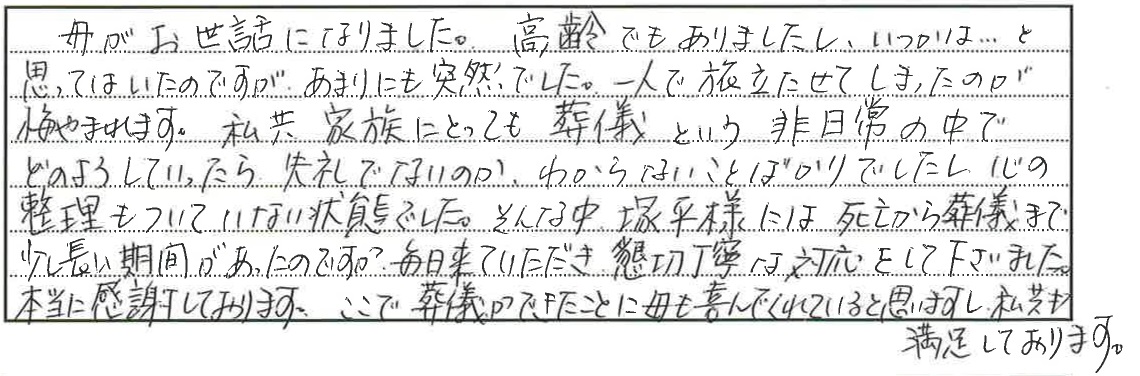 母がお世話になりました。高齢でもありましたし、いつかは…と
思ってはいたのですが、あまりにも突然でした。一人で旅立たせてしまったのが
悔やまれます。私共家族にとっても葬儀という非日常の中で
どのようしていったら失礼でないのか、わからないことばかりでしたし、心の
整理もついていない状態でした。そんな中、塚平様には死亡から葬儀まで
少し長い期間があったのですが、毎日来ていただき、懇切丁寧な対応をして下さいました。
本当に感謝しております。ここで葬儀ができたことに母も喜んでくれていると思いますし、私共も
満足しております。